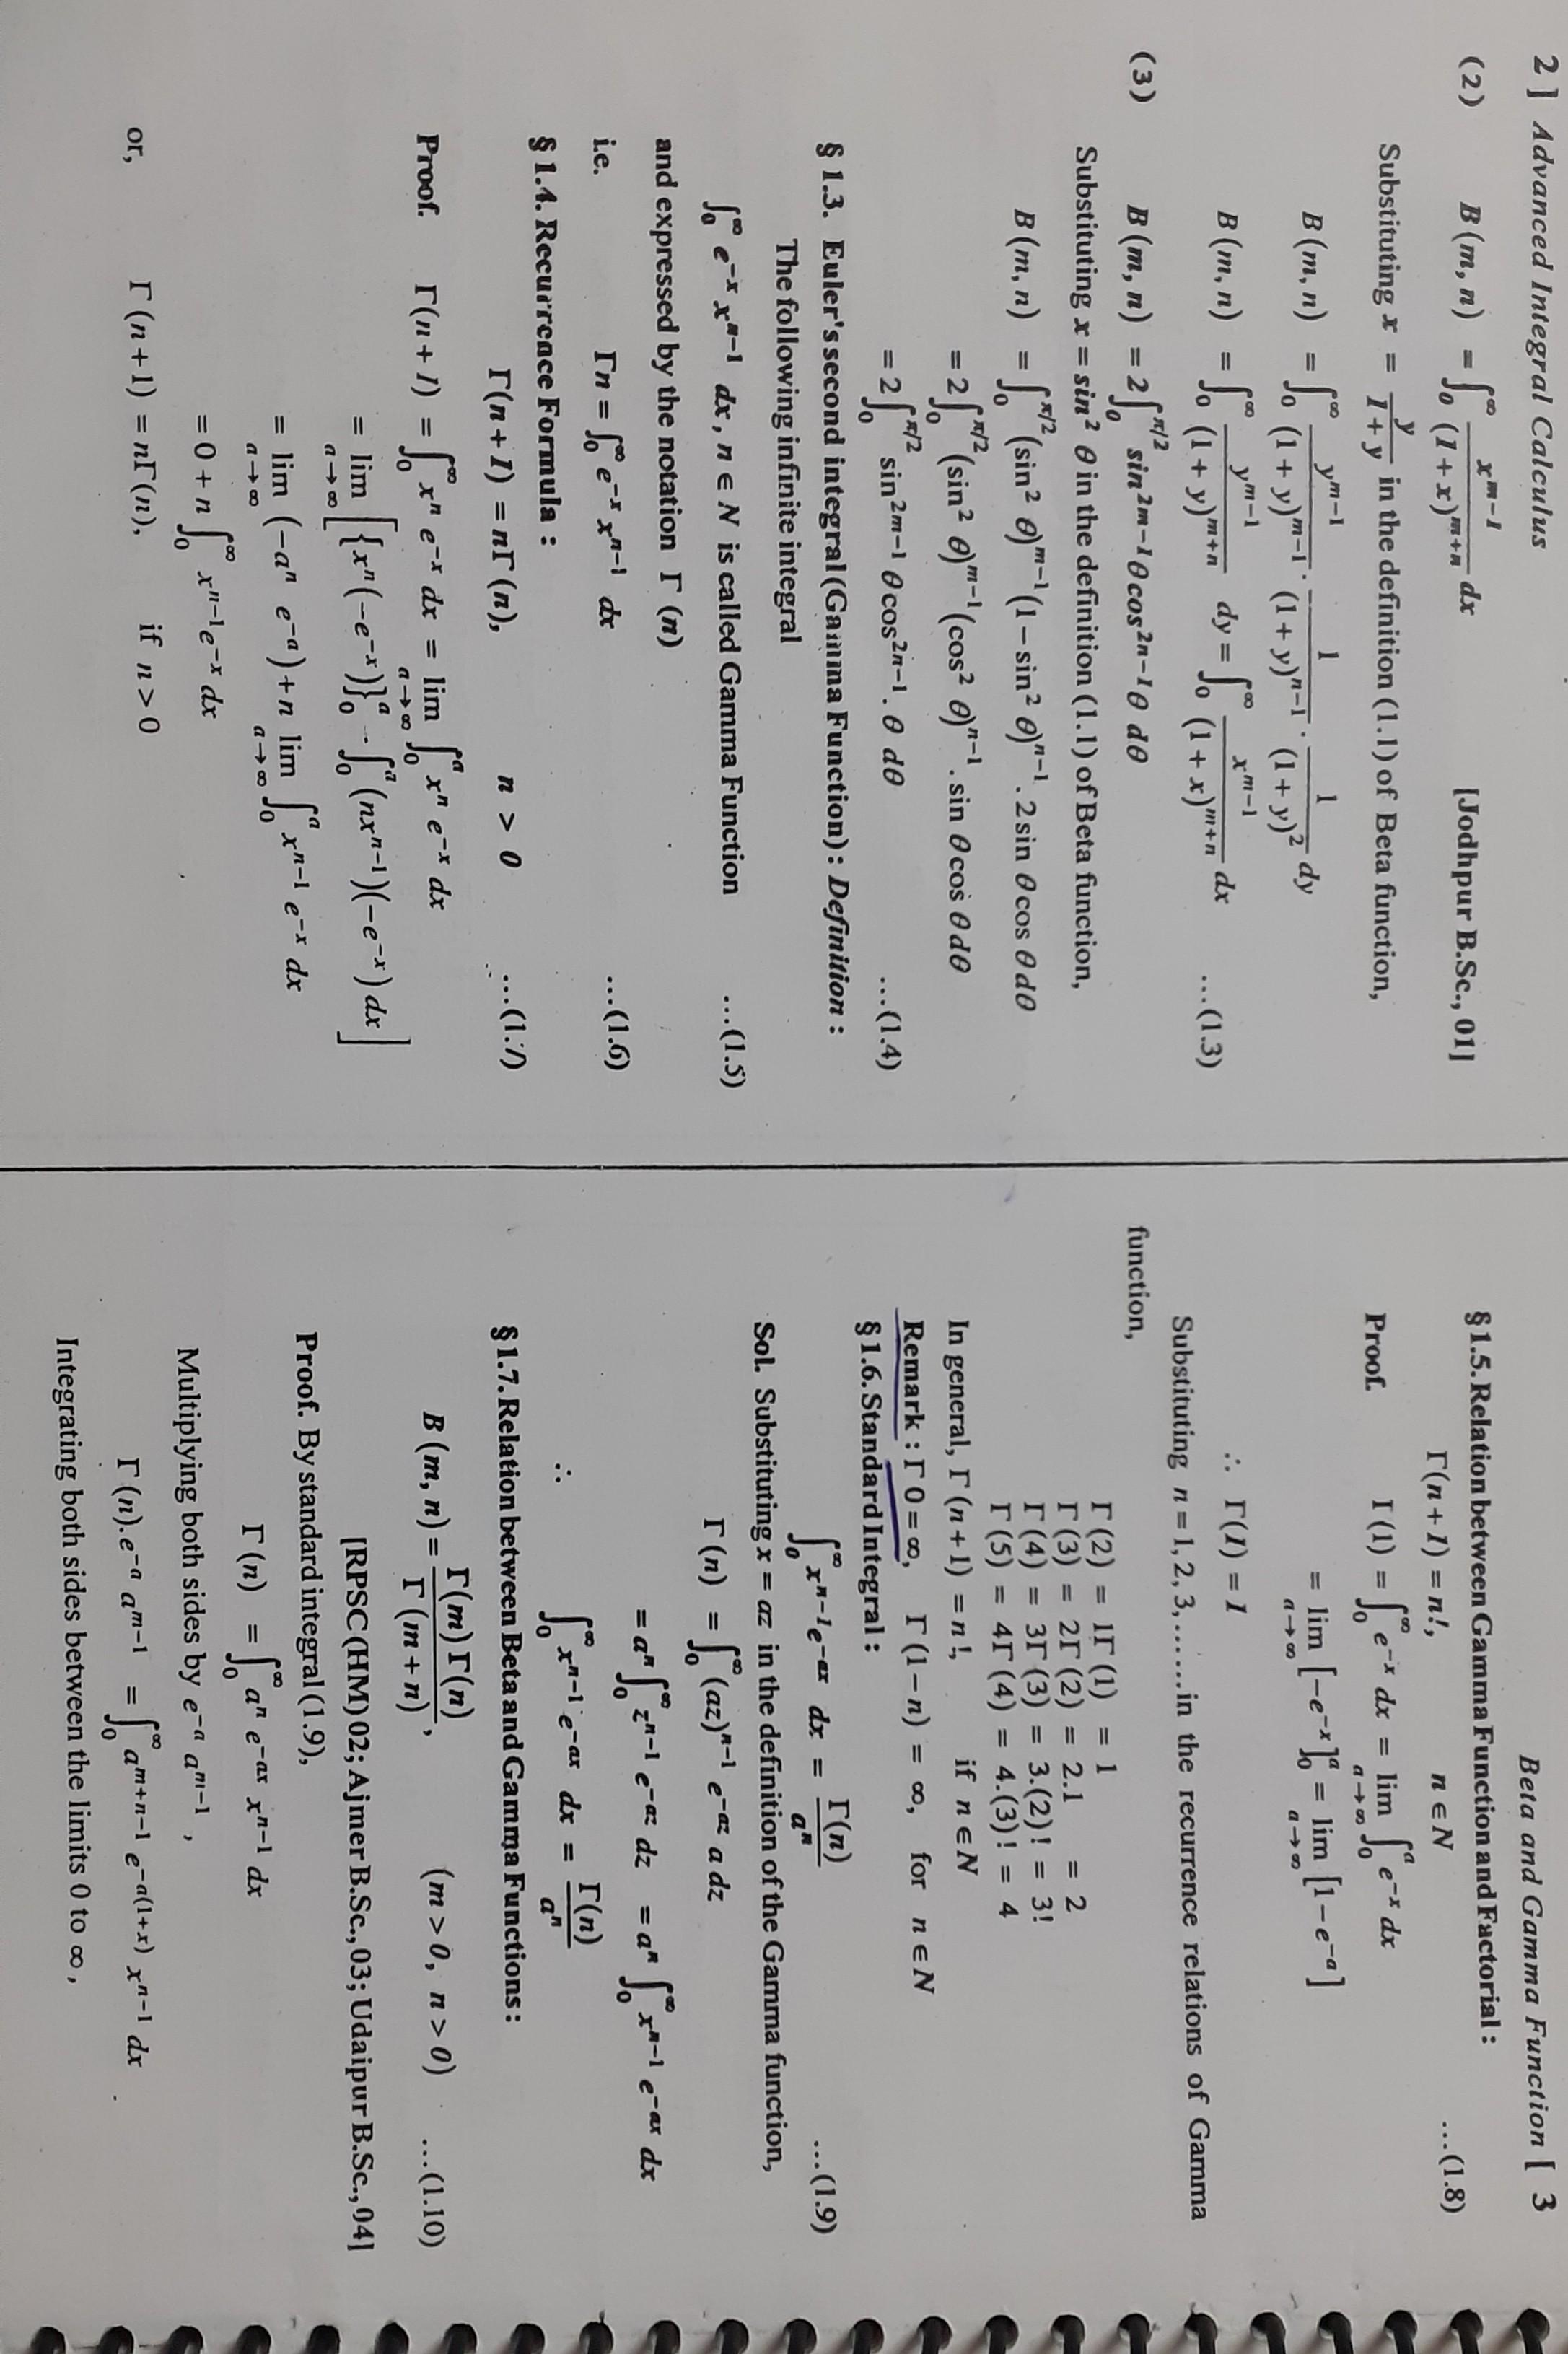 2 ] Advanced Integral Calculus
(2) B (m, n) = ∫₀^∞ x^{m-1} / (1+x)^{m+n} dx [Jodhpur B.Sc., 01]
Substituting x = y / 1+y in the definition (1.1) of Beta function,
B (m, n) = ∫₀^∞ y^{m-1} / (1+y)^{m-1} . 1 / (1+y)^{n-1} . 1 / (1+y)² dy
B (m, n) = ∫₀^∞ y^{m-1} / (1+y)^{m+n} dy = ∫₀^∞ x^{m-1} / (1+x)^{m+n} dx ...(1.3)
(3) B (m, n) = 2∫₀^{π/2} sin^{2m-1} θ cos^{2n-1} θ dθ
Substituting x = sin² θ in the definition (1.1) of Beta function,
B (m, n) = ∫₀^{π/2} (sin² θ)^{m-1} (1 – sin² θ)^{n-1} . 2 sin θ cos θ dθ
= 2∫₀^{π/2} (sin² θ)^{m-1} (cos² θ)^{n-1} . sin θ cos θ dθ
= 2∫₀^{π/2} sin^{2m-1} θ cos^{2n-1} . θ dθ ....(1.4)
§ 1.3. Euler's second integral (Gamma Function) : Definition :
The following infinite integral
∫₀^∞ e^{-x} x^{n-1} dx, n ∈ N is called Gamma Function ....(1.5)
and expressed by the notation Γ (n)
i.e. Γn = ∫₀^∞ e^{-x} x^{n-1} dx ...(1.6)
§ 1.4. Recurrence Formula :
Γ(n + 1) = nΓ (n), n > 0 ...(1.7)
Proof. Γ(n + 1) = ∫₀^∞ xⁿ e^{-x} dx = lim_{a→∞} ∫₀^a xⁿ e^{-x} dx
= lim_{a→∞} [ {xⁿ(–e^{-x})}₀^a - ∫₀^a (nx^{n-1})(–e^{-x}) dx ]
= lim_{a→∞} (–aⁿ e^{-a}) + n lim_{a→∞} ∫₀^a x^{n-1} e^{-x} dx
= 0 + n ∫₀^∞ x^{n-1} e^{-x} dx
or, Γ (n + 1) = nΓ (n), if n > 0
Beta and Gamma Function [ 3
§ 1.5. Relation between Gamma Function and Factorial :
Γ(n + 1) = n!, n ∈ N ...(1.8)
Proof. Γ (1) = ∫₀^∞ e^{-x} dx = lim_{a→∞} ∫₀^a e^{-x} dx
= lim_{a→∞} [–e^{-x}]₀^a = lim_{a→∞} [1 – e^{-a}]
∴ Γ(1) = 1
Substituting n = 1, 2, 3, ......in the recurrence relations of Gamma
function,
Γ (2) = 1Γ (1) = 1
Γ (3) = 2Γ (2) = 2.1 = 2
Γ (4) = 3Γ (3) = 3.(2)! = 3!
Γ (5) = 4Γ (4) = 4.(3)! = 4
In general, Γ (n + 1) = n!, if n ∈ N
Remark : Γ 0 = ∞, Γ (1 – n) = ∞, for n ∈ N
§ 1.6. Standard Integral :
∫₀^∞ x^{n-1} e^{-ax} dx = Γ(n) / aⁿ ...(1.9)
Sol. Substituting x = az in the definition of the Gamma function,
Γ (n) = ∫₀^∞ (az)^{n-1} e^{-az} a dz
= aⁿ ∫₀^∞ z^{n-1} e^{-az} dz = aⁿ ∫₀^∞ x^{n-1} e^{-ax} dx
∴ ∫₀^∞ x^{n-1} e^{-ax} dx = Γ(n) / aⁿ
§ 1.7. Relation between Beta and Gamma Functions :
B (m, n) = Γ(m) Γ(n) / Γ (m + n), (m > 0, n > 0) ...(1.10)
[RPSC (HM) 02; Ajmer B.Sc., 03; Udaipur B.Sc., 04]
Proof. By standard integral (1.9),
Γ (n) = ∫₀^∞ aⁿ e^{-ax} x^{n-1} dx
Multiplying both sides by e^{-a} a^{m-1},
Γ (n). e^{-a} a^{m-1} = ∫₀^∞ a^{m+n-1} e^{-a(1+x)} x^{n-1} dx
Integrating both sides between the limits 0 to ∞,